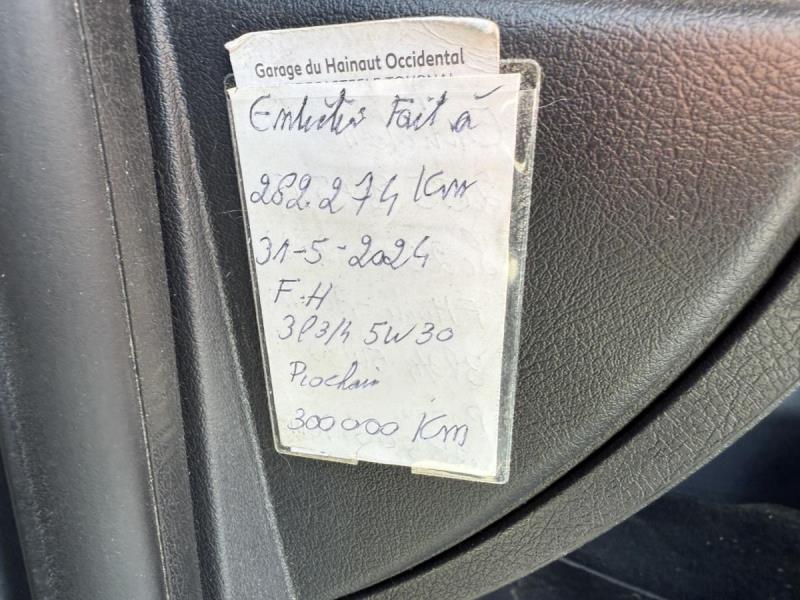 Garage du Hainaut Occidental
Entretien Fait à
282.274 Km
31-5-2024
F.H
3l3/4 5W30
Prochain
300000 Km